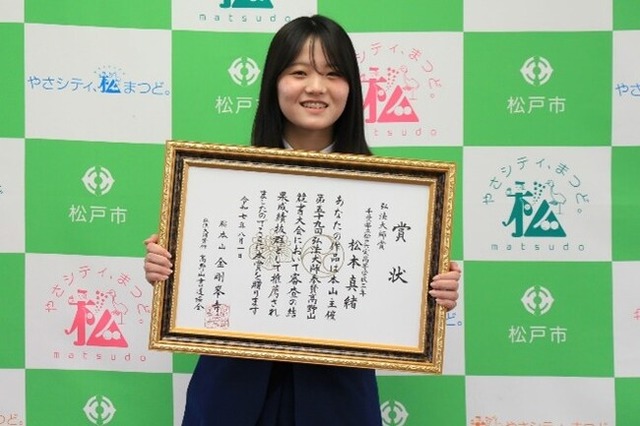 matsudo
松
matsudo
やさシティ、松まつど。
松戸市
松
matsudo
松戸市
やさシティ、まつど。
松戸市
やさシティ、まつど。
松
matsudo
やさシティ、まつど。
松
matsudo
松戸市
やさシティ、松まつど。
賞状
弘法大師賞
松本真緒
あなたの作品は本山主催
第五十九回弘法大師奉賛高野山
競書大会において審査の結
果成績抜群として推薦され
ましたので
賞を贈ります
令和七年八月一日
総本山 金剛峯寺
高野山書道協会